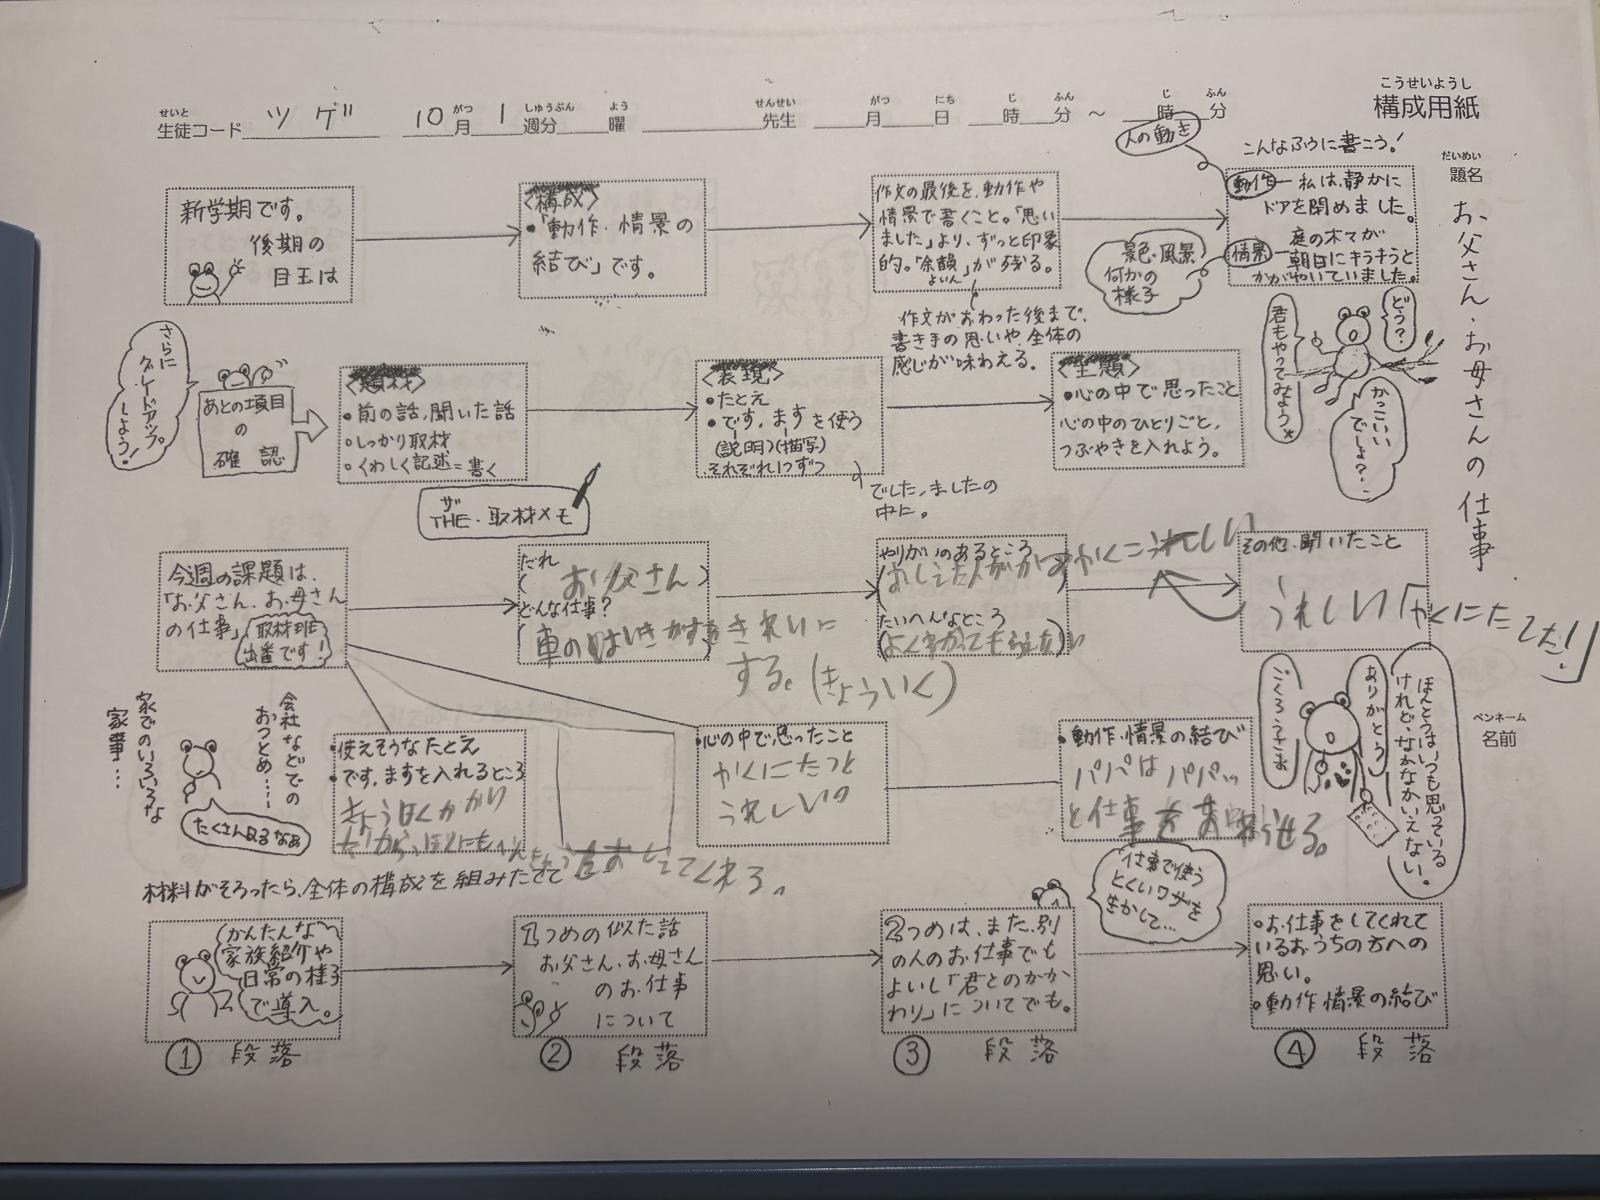 こうせいようし
構成用紙
せいと
生徒コード ツゲ 10 がつ 月 1 しゅうぶん 週分 よう 曜 せんせい 先生 がつ 月 にち 日 じ 時 ふん 分 ～ じ 時 ふん 分
だいめい
題名
お父さん・お母さんの仕事
ペンネーム
名前
新学期です。
後期の
目玉は
<構成>
・「動作・情景の
結び」です。
作文の最後を、動作や
情景で書くこと。「思い
ました」より、ずっと印象
的。「余韻」が残る。
よいん
作文がおわった後まで、
書き手の思いや、全体の
感じが味わえる。
人の動き
こんなふうに書こう！
動作ー私は、静かに
ドアを閉めました。
情景ー庭の木々が
朝日にキラキラと
かがやいていました。
景色・風景
何かの
様子
どう？
君もやってみよう
かっこいい
でしょ？
さらに
グレードアップ
しよう！
あとの項目
の
確認
<題材>
・前の話、聞いた話
・しっかり取材
・くわしく記述=書く
ザ
THE・取材メモ
<表現>
・たとえ
・です、ますを使う
(説明)(描写)
それぞれ1つずつ
でした、ましたの
中に。
<主題>
・心の中で思ったこと
心の中のひとりごと、
つぶやきを入れよう。
今週の課題は、
「お父さん、お母さん
の仕事」
取材班
出番です！
だれ
(お父さん)
どんな仕事？
きれいに
する。(きょういく)
やりがいのあるところ
たいへんなところ
その他、聞いたこと
うれしい
会社などでの
おつとめ……
家でのいろいろな
家事…
たくさんあるなあ
・使えそうなたとえ
・です、ますを入れるところ
おしえてくれる。
・心の中で思ったこと
やくにたつと
うれしいの
・動作・情景の結び
パパはパパッ
と仕事を
ごくろうさま
ありがとう
ほんとうは、いつも思っている
けれど、なかなかいえない。
材料がそろったら、全体の構成を組みたてて
かんたんな
家族紹介や
日常の様子
で導入。
① 段落
1つめの似た話
お父さん、お母さん
のお仕事
について
② 段落
2つめは、また、別
の人のお仕事でも
よいし「君とのかか
わり」についてでも。
③ 段落
仕事で使う
とくいワザを
生かして…
・お仕事をしてくれて
いるおうちの方への
思い。
・動作・情景の結び
④ 段落